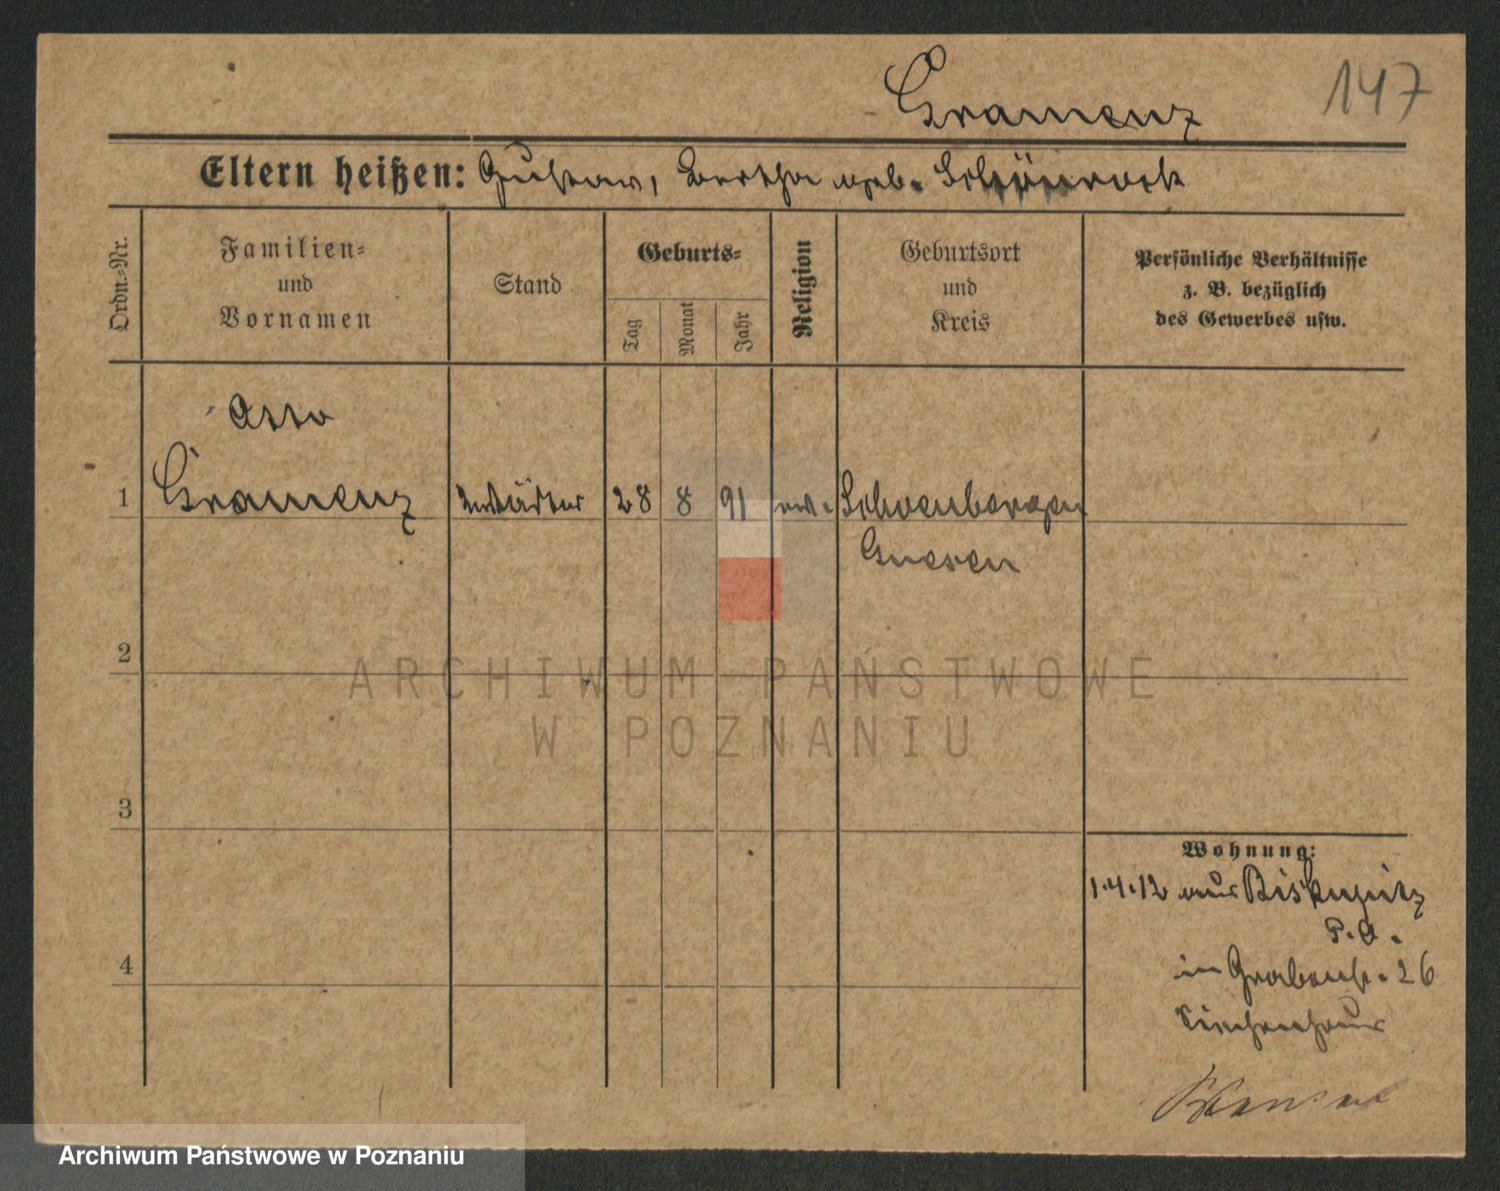 Gramenz 147
Eltern heißen: Gustav, Bertha geb. Schönrock
Ordn.=Nr.
Familien=
und
Vornamen
Stand
Geburts=
Tag
Monat
Jahr
Religion
Geburtsort
und
Kreis
Persönliche Verhältnisse
z. B. bezüglich
des Gewerbes usw.
Otto
1 Gramenz Wächter 28 8 91 ev. Schoenbergen
Gnesen
2
3
4
Wohnung:
1.4.12 aus Biskupitz
P. O.
in Grabenstr. 26
ARCHIWUM PAŃSTWOWE
W POZNANIU
Archiwum Państwowe w Poznaniu